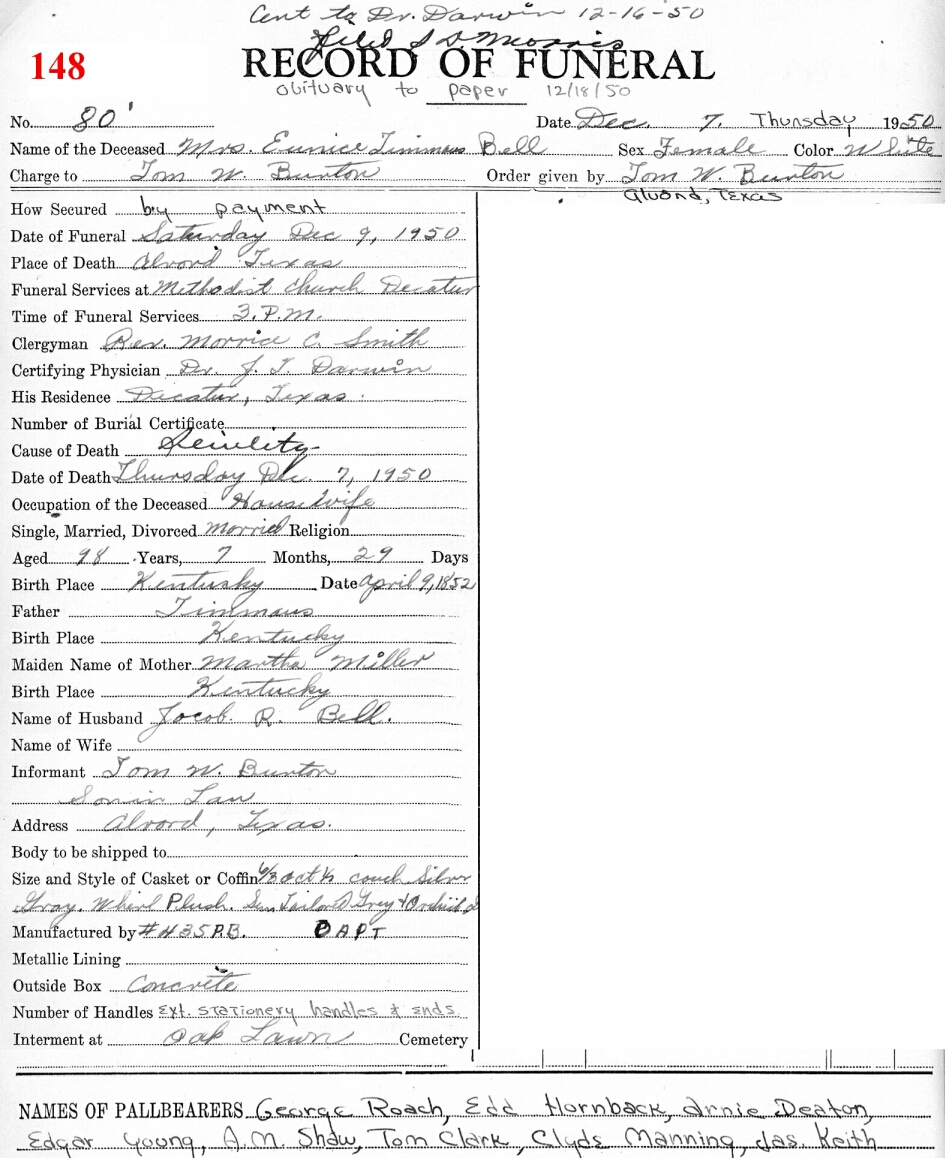 Cent to Dr. Darwin 12-16-50
Filed S D Morris
148
RECORD OF FUNERAL
obituary to paper 12/18/50
No. 80' Date Dec. 7, Thursday 1950
Name of the Deceased Mrs. Eunice Timmons Bell Sex Female Color White
Charge to Tom W. Bunton Order given by Tom W. Bunton
alvord, Texas
How Secured by payment
Date of Funeral Saturday Dec 9, 1950
Place of Death Alvord Texas
Funeral Services at Methodist Church Decatur
Time of Funeral Services 3.P.M.
Clergyman Rev. Morrice C. Smith
Certifying Physician Dr. J. T. Darwin
His Residence Decatur, Texas.
Number of Burial Certificate
Cause of Death
Date of Death Thursday Dec. 7, 1950
Occupation of the Deceased House Wife
Single, Married, Divorced Morried Religion
Aged 98 Years, 7 Months, 29 Days
Birth Place Kentusky Date April 9, 1852
Father Timmons
Birth Place Kentucky
Maiden Name of Mother Martha Miller
Birth Place Kentucky
Name of Husband Jocob. R. Bell.
Name of Wife
Informant Tom W. Bunton
Sonin Law
Address Alvord, Texas.
Body to be shipped to
Size and Style of Casket or Coffin 6/3 Oct ½ couch Silver
Gray. Whirl Plush. Grey + Orchid
Manufactured by # H35P.B. DAPT
Metallic Lining
Outside Box Concrete
Number of Handles Ext. stationery handles & ends
Interment at Oak Lawn Cemetery
NAMES OF PALLBEARERS George Roach, Edd Hornback, Arnie Deaton,
Edgar Young, A.M. Shaw, Tom Clark, Clyds Manning, Jas. Keith